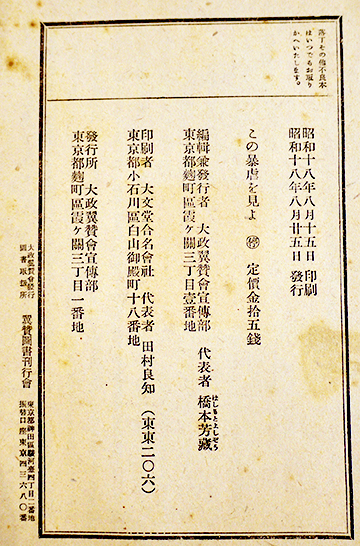 落丁その他不良本
はいつでもお取り
かへいたします。
昭和十八年八月十五日 印刷
昭和十八年八月廿五日 發行
この暴虐を見よ ㊕ 定價金拾五錢
編輯兼發行者 大政翼賛會宣傳部 代表者 橋本芳藏
はしもとよしぞう
東京都麹町區霞ヶ關三丁目壹番地
印刷者 大文堂合名會社 代表者 田村良知 (東東二〇六)
東京都小石川區白山御殿町十八番地
發行所 大政翼賛會宣傳部
東京都麹町區霞ヶ關三丁目一番地
大政翼賛會發行
圖書取扱所
翼賛圖書刊行會
東京都神田區駿河臺四丁目二番地
振替口座東京四三六八〇番